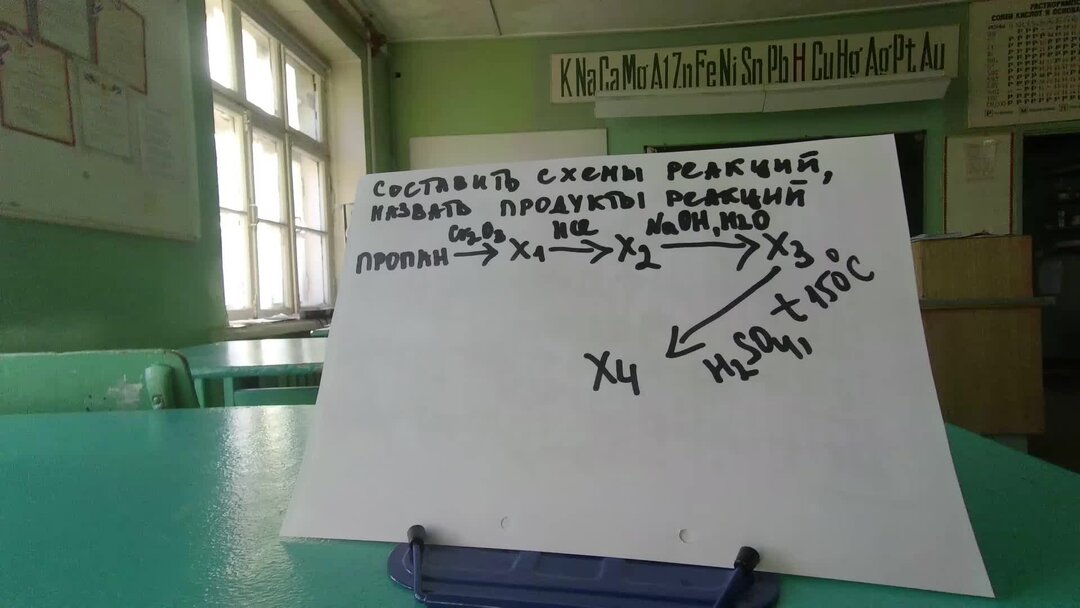 K Na Ca Mg Al Zn Fe Ni Sn Pb H Cu Hg Ag Pt Au
РАСТВОРИМОСТЬ
СОЛЕЙ КИСЛОТ И ОСНОВАНИЙ
СОСТАВИТЬ СХЕМЫ РЕАКЦИЙ,
НАЗВАТЬ ПРОДУКТЫ РЕАКЦИЙ
ПРОПАН —Cr2O3→ X1 —HCl→ X2 —NaOH, H2O→ X3
H2SO4, t 150°C
X4